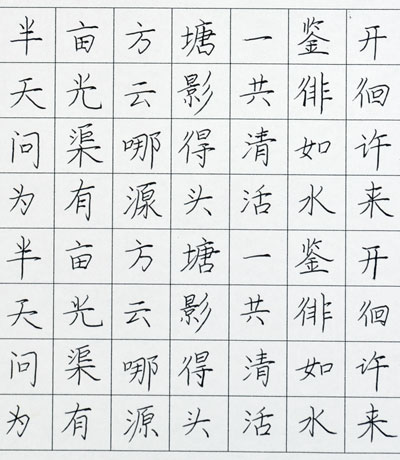 半亩方塘一鉴开
天光云影共徘徊
问渠哪得清如许
为有源头活水来
半亩方塘一鉴开
天光云影共徘徊
问渠哪得清如许
为有源头活水来